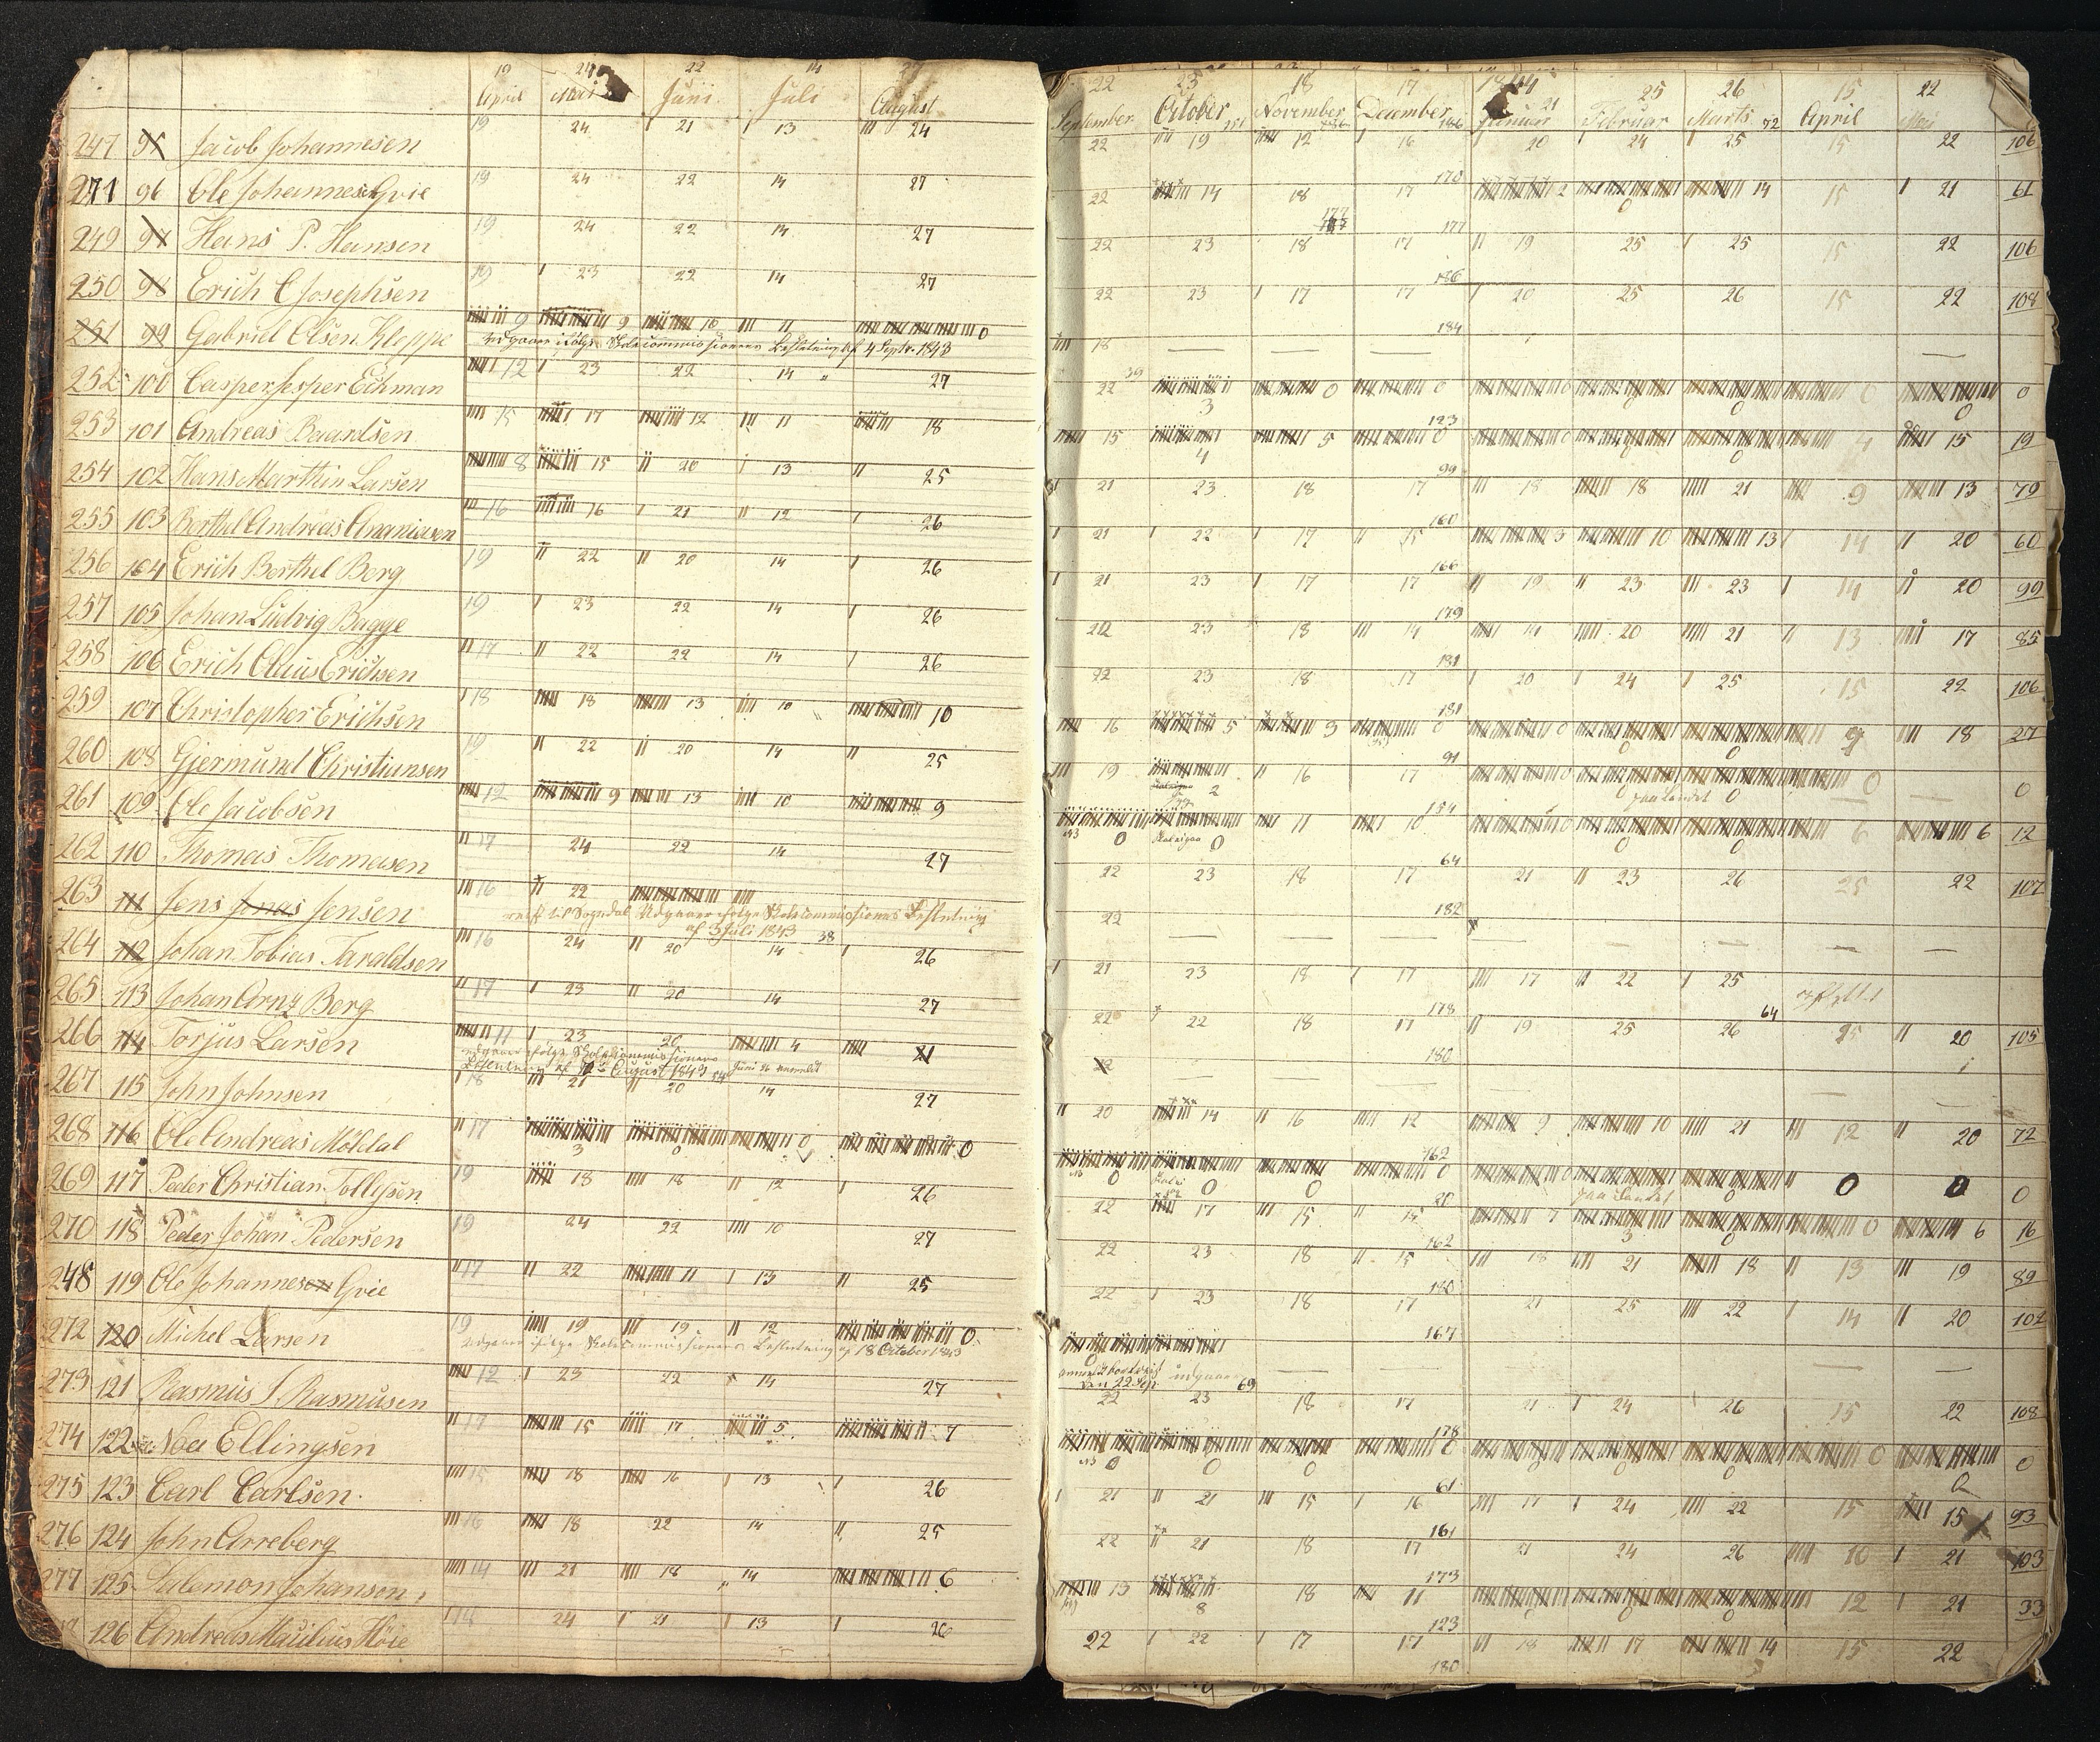 19 24 22 14 27
April Mai Juni Juli August
247 95 Jacob Johannesen 19 24 21 13 24
271 96 Ole Johannesen Grie 19 24 22 14 27
249 97 Hans P. Hansen 19 24 22 14 27
250 98 Erich C Josephsen 19 23 22 14 27
251 99 Gabriel Olsen Kloppe 9 9 10 11 0
udgaaer ifølge Skolecommissionens Beslutning af 4 Septr. 1843
252 100 Casper Jesper Echman 12 23 22 14 27
253 101 Andreas Baardsen 15 17 12 11 18
254 102 Hans Marthin Larsen 8 15 20 13 25
255 103 Berthel Andreas Ananiasen 16 16 21 12 26
256 104 Erich Berthel Berg 19 22 20 14 26
257 105 Johan Ludvig Bagge 19 23 22 14 26
258 106 Erich Claus Erichsen 17 22 22 14 26
259 107 Christopher Erichsen 18 18 13 10 10
260 108 Gjermund Christiansen 19 22 20 14 25
261 109 Ole Jacobsen 12 9 13 10 9
262 110 Thomas Thomasen 17 24 22 14 27
263 111 Jens Jonas Jensen 16 22
reist til Sogndal Udgaaer ifølge Skolecommissionens Beslutning
af 3 Juli 1843 38
264 112 Johan Tobias Taraldsen 16 24 20 14 26
265 113 Johan Arnt Berg 17 23 20 14 27
266 114 Torjus Larsen 11 23 20 4 21
udgaaer ifølge Skolecommissionens
Beslutning af August 1843
267 115 John Johnsen 18 21 20 14 27
268 116 Ole Andreas Møldal 17 3 0 0 0
269 117 Peder Christian Tollefsen 19 18 18 12 26
270 118 Peder Johan Pedersen 19 24 22 10 27
248 119 Ole Johannesen Grie 17 22 11 13 25
272 120 Michel Larsen 19 19 19 12 0
udgaaer ifølge Skolecommissionens Beslutning af 18 October 1843
273 121 Rasmus S. Rasmusen 12 23 22 14 27
274 122 Noa Ellingsen 17 15 17 5 7
275 123 Carl Carlsen 15 18 16 13 26
276 124 John Arreberg 16 18 22 14 25
277 125 Salomon Johansen 14 21 18 14 6
126 Andreas Maulius Høie 18 24 21 13 26
22 23 18 17 1844 21 25 26 15 22
September October November December Januar Februar Marts April Mai
22 19 12 16 20 24 25 15 22 106
22 14 18 17 170 2 0 14 15 21 61
22 23 18 17 177 19 25 25 15 22 106
22 23 17 17 186 20 25 26 15 22 108
18 184
22 39 3 0 0 0 0 0 0 0 0
15 4 5 0 123 0 0 0 4 15 19
21 23 18 17 99 18 18 21 9 13 79
21 22 17 15 160 3 10 13 14 20 60
21 23 17 17 166 19 23 23 14 20 99
22 23 18 14 179 14 20 21 13 17 85
22 23 18 17 181 20 24 25 15 22 106
16 5 3 0 181 0 0 0 9 18 27
19 2 16 17 91 0 paa Landet 0 0 0
0 0 11 10 154 0 0 0 6 6 12
22 23 18 17 64 21 23 26 25 22 107
22 182
21 23 18 17 17 22 25
22 22 18 17 178 19 25 26 64 25 20 105
22 180
20 14 16 12 9 10 21 12 20 72
0 0 0 0 162 0 paa Landet 0 0 0 0
22 17 15 15 20 7 3 0 0 6 16
22 23 18 15 162 18 21 18 13 19 89
22 23 18 17 140 21 25 22 14 20 102
0 167
anmeldt bortreist udgaaer
den 22 Sep. 69
22 23 18 17 21 24 26 15 22 108
0 0 0 0 178 0 0 0 0 0 0
21 21 15 16 61 17 24 22 15 15 93
22 21 18 17 161 21 24 26 10 21 103
13 8 18 11 173 0 0 0 12 21 33
22 22 17 17 123 18 17 14 15 22
180